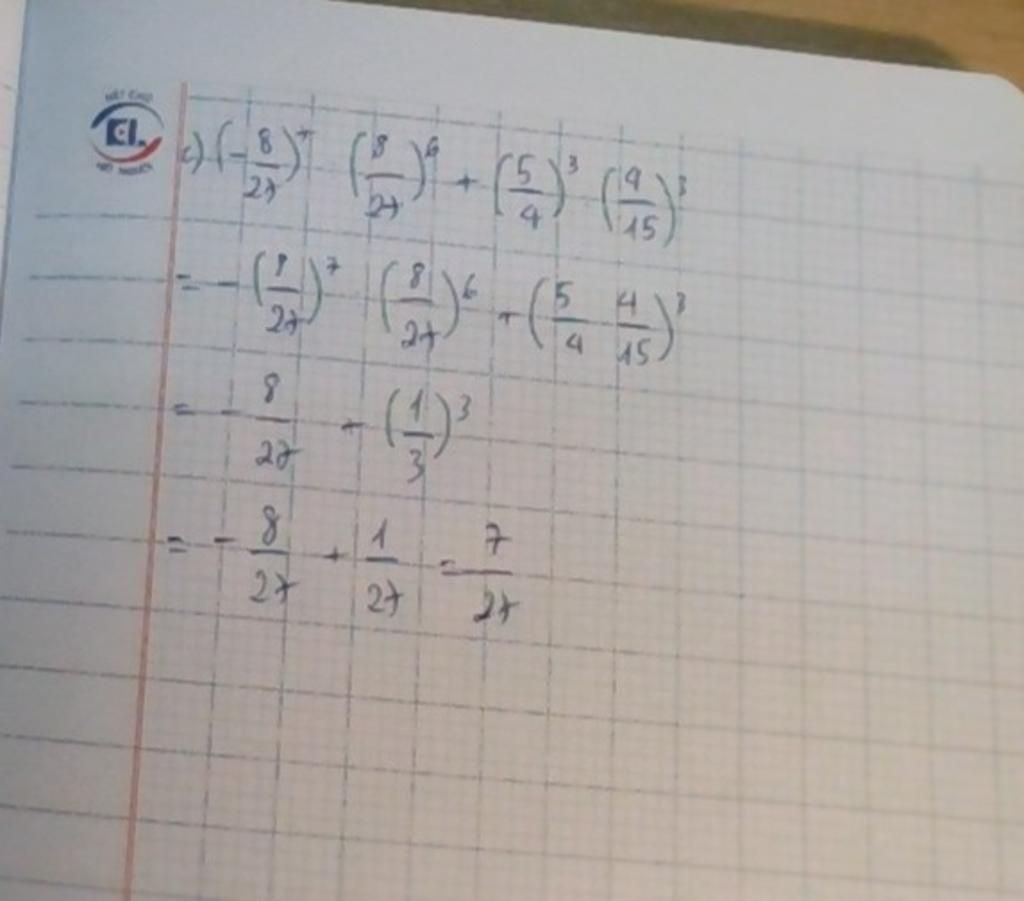 c) (-8/27)^7 (8/27)^6 + (5/4)^3 (4/15)^3
= - (8/27)^7 (8/27)^6 + (5/4 4/15)^3
= - 8/27 + (1/3)^3
= - 8/27 + 1/27 = 7/27